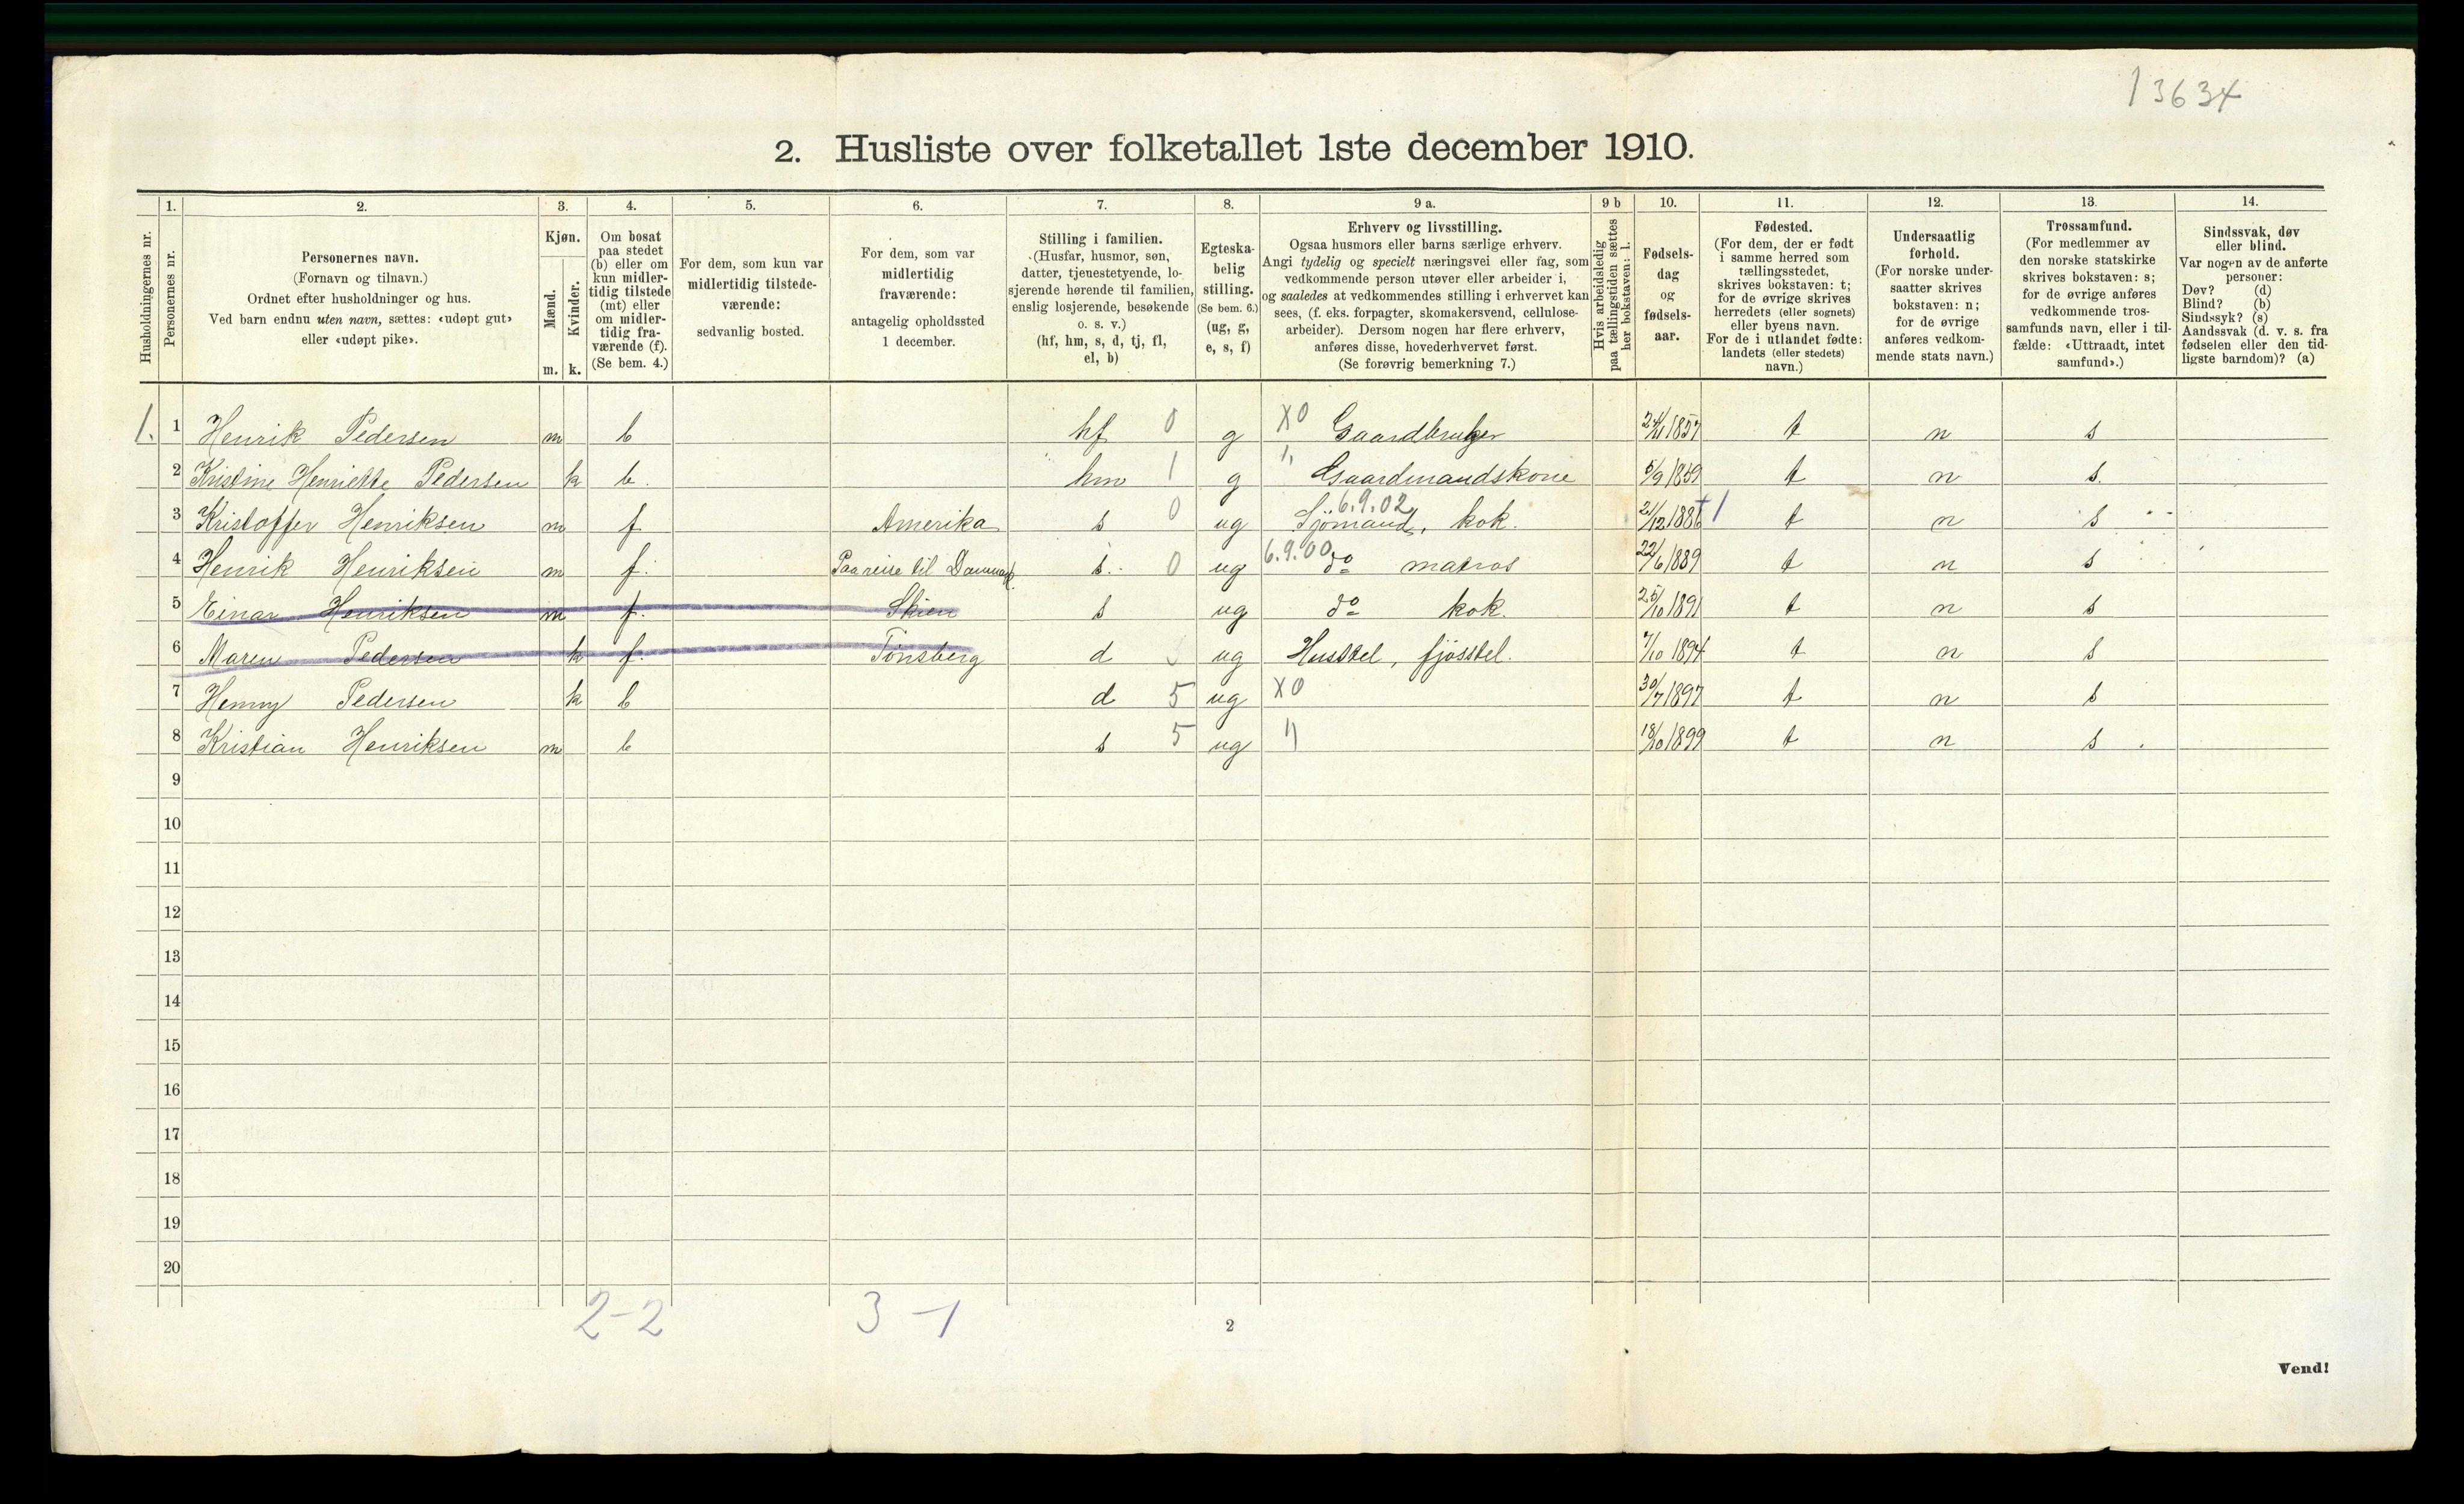 13634
2. Husliste over folketallet 1ste december 1910.
1. 2. 3. 4. 5. 6. 7. 8. 9 a. 9 b 10. 11. 12. 13. 14.
Husholdningernes nr.
Personernes nr.
Personernes navn.
(Fornavn og tilnavn.)
Ordnet efter husholdninger og hus.
Ved barn endnu uten navn, sættes: «udøpt gut»
eller «udøpt pike».
Kjøn.
Mænd.
Kvinder.
m. k.
Om bosat
paa stedet
(b) eller om
kun midler-
tidig tilstede
(mt) eller
om midler-
tidig fra-
værende (f).
(Se bem. 4.)
For dem, som kun var
midlertidig tilstede-
værende:
sedvanlig bosted.
For dem, som var
midlertidig
fraværende:
antagelig opholdssted
1 december.
Stilling i familien.
(Husfar, husmor, søn,
datter, tjenestetyende, lo-
sjerende hørende til familien,
enslig losjerende, besøkende
o. s. v.)
(hf, hm, s, d, tj, fl,
el, b)
Egteska-
belig
stilling.
(Se bem. 6.)
(ug, g,
e, s, f)
Erhverv og livsstilling.
Ogsaa husmors eller barns særlige erhverv.
Angi tydelig og specielt næringsvei eller fag, som
vedkommende person utøver eller arbeider i,
og saaledes at vedkommendes stilling i erhvervet kan
sees, (f. eks. forpagter, skomakersvend, cellulose-
arbeider). Dersom nogen har flere erhverv,
anføres disse, hovederhvervet først.
(Se forøvrig bemerkning 7.)
Hvis arbeidsledig
paa tællingstiden sættes
her bokstaven: l.
Fødsels-
dag
og
fødsels-
aar.
Fødested.
(For dem, der er født
i samme herred som
tællingsstedet,
skrives bokstaven: t;
for de øvrige skrives
herredets (eller sognets)
eller byens navn.
For de i utlandet fødte:
landets (eller stedets)
navn.)
Undersaatlig
forhold.
(For norske under-
saatter skrives
bokstaven: n;
for de øvrige
anføres vedkom-
mende stats navn.)
Trossamfund.
(For medlemmer av
den norske statskirke
skrives bokstaven: s;
for de øvrige anføres
vedkommende tros-
samfunds navn, eller i til-
fælde: «Uttraadt, intet
samfund».)
Sindssvak, døv
eller blind.
Var nogen av de anførte
personer:
Døv? (d)
Blind? (b)
Sindssyk? (s)
Aandssvak (d. v. s. fra
fødselen eller den tid-
ligste barndom)? (a)
1. 1 Henrik Pedersen m b hf 0 g X0 Gaardbruger 24/11 1857 t n s
2 Kristine Henriette Pedersen k b. hm 1 g " Gaardmandskone 5/9 1859 t n s.
3 Kristoffer Henriksen m f Amerika s 0 ug 6.9.02 Sjömand, kok. 21/12 1886 +1 t n s
4 Henrik Henriksen m f. Paa reise til Danmark s. 0 ug 6.9.00 do matros 22/6 1889 t n s
5 Einar Henriksen m f. Skien s ug do kok. 25/10 1891 t n s
6 Maren Pedersen k f. Tönsberg d ug Husstel, fjøsstel. 7/10 1894 t n s
7 Henny Pedersen k b d 5 ug X0 30/7 1897 t n s
8 Kristian Henriksen m b s 5 ug " 18/10 1899 t n s.
9
10
11
12
13
14
15
16
17
18
19
20
2-2 3-1
2
Vend!